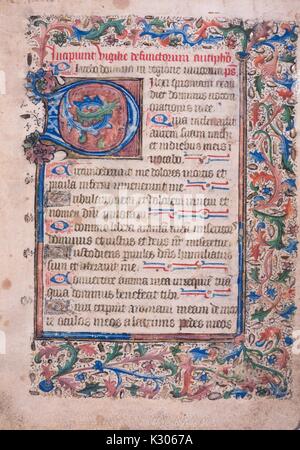 Incipiunt vigilie defunctorum antipho
Placebo domino in regione vivorum ps
Dilexi quoniam exau
diet dominus vocem
orationis mee
Quia inclinavit
aurem suam michi
et in diebus meis i
vocabo
Circumdederunt me dolores mortis et
pericula inferni invenerunt me
Tribulationem et dolorem inveni et
nomen domini invocavi
O domine libera animam meam misericors
dominus et iustus et deus noster miseretur
Custodiens parvulos dominus humiliatus
sum et liberavit me
Convertere anima mea in requiem tuam
quia dominus benefecit tibi
Quia eripuit animam meam de mor
te oculos meos a lacrimis pedes meos
alamy
Image ID: K3067A
www.alamy.com